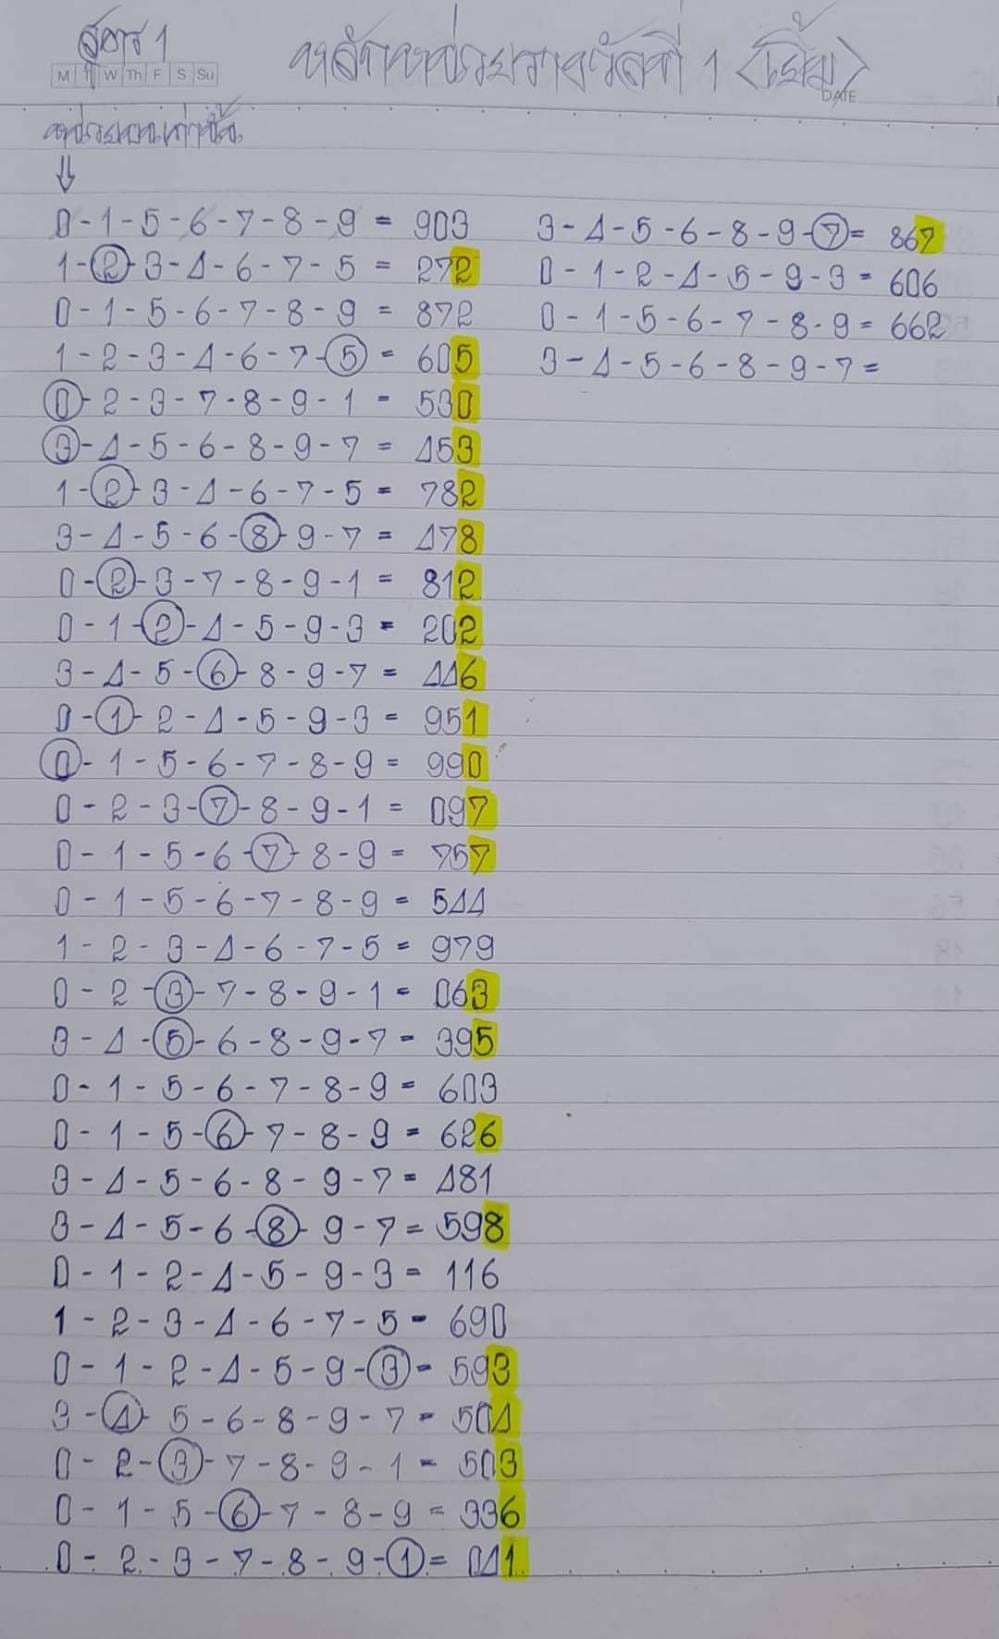 สูตร 1
หลักหน่วยรางวัลที่ 1 <เน้น>
M T W Th F S Su
DATE
หน่วยบนเท่านั้น
⇓
0-1-5-6-7-8-9 = 903
1-2-3-4-6-7-5 = 272
0-1-5-6-7-8-9 = 872
1-2-3-4-6-7-5 = 605
0-2-3-7-8-9-1 = 530
3-4-5-6-8-9-7 = 453
1-2-3-4-6-7-5 = 782
3-4-5-6-8-9-7 = 478
0-2-3-7-8-9-1 = 812
0-1-2-4-5-9-3 = 202
3-4-5-6-8-9-7 = 446
0-1-2-4-5-9-3 = 951
0-1-5-6-7-8-9 = 990
0-2-3-7-8-9-1 = 097
0-1-5-6-7-8-9 = 757
0-1-5-6-7-8-9 = 544
1-2-3-4-6-7-5 = 979
0-2-3-7-8-9-1 = 063
3-4-5-6-8-9-7 = 395
0-1-5-6-7-8-9 = 603
0-1-5-6-7-8-9 = 626
3-4-5-6-8-9-7 = 481
3-4-5-6-8-9-7 = 598
0-1-2-4-5-9-3 = 116
1-2-3-4-6-7-5 = 690
0-1-2-4-5-9-3 = 593
3-4-5-6-8-9-7 = 504
0-2-3-7-8-9-1 = 503
0-1-5-6-7-8-9 = 336
0-2-3-7-8-9-1 = 041
3-4-5-6-8-9-7 = 867
0-1-2-4-5-9-3 = 606
0-1-5-6-7-8-9 = 662
3-4-5-6-8-9-7 =